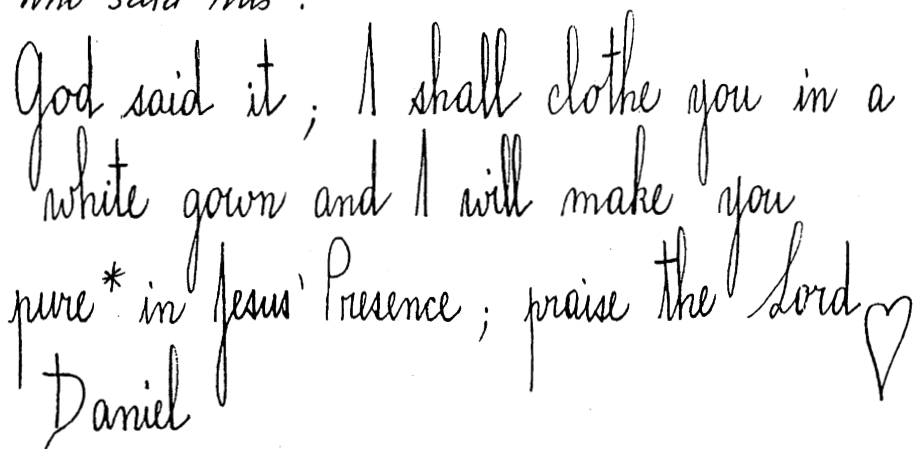 who said this?
God said it; I shall clothe you in a
white gown and I will make you
pure* in Jesus' Presence; praise the Lord
Daniel